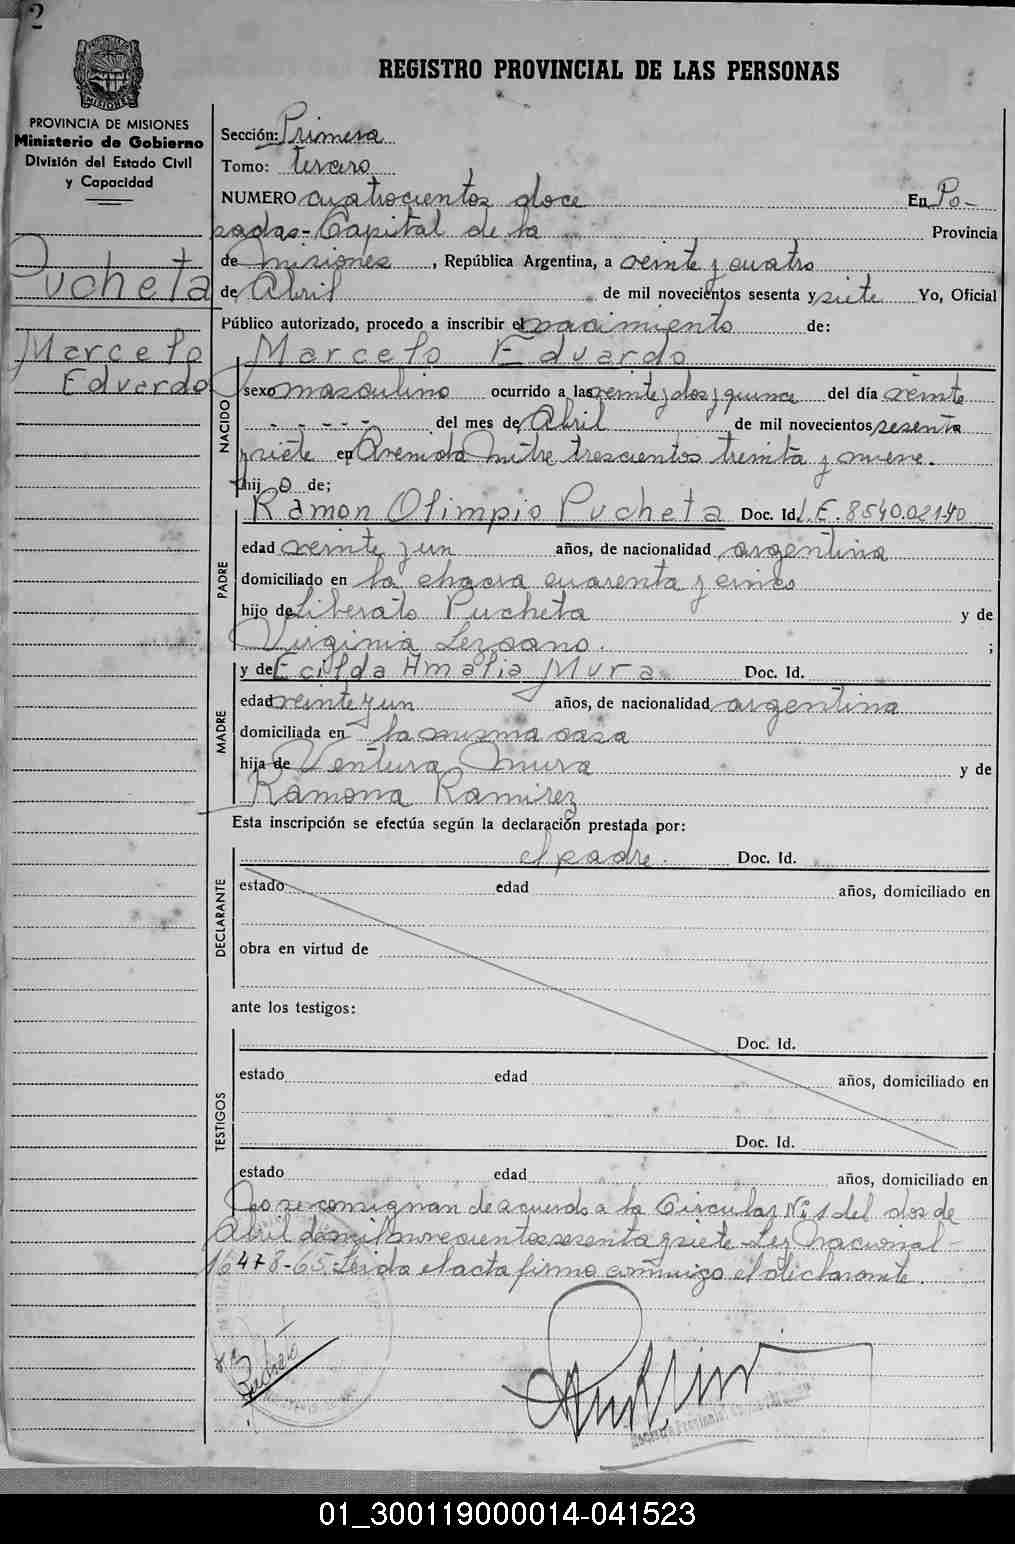 2
REGISTRO PROVINCIAL DE LAS PERSONAS
PROVINCIA DE MISIONES
Ministerio de Gobierno
División del Estado Civil
y Capacidad
Pucheta
Marcelo
Eduardo
Sección: Primera
Tomo: tercero
NUMERO cuatrocientos doce En Po-
sadas-Capital de la Provincia
de Misiones, República Argentina, a veinte y cuatro
de Abril de mil novecientos sesenta y siete Yo, Oficial
Público autorizado, procedo a inscribir el nacimiento de:
Marcelo Eduardo
NACIDO
sexo masculino ocurrido a las veinte y dos y quince del día veinte
- - - - - del mes de Abril de mil novecientos sesenta
y siete en Avenida Mitre trescientos treinta y nueve.
hij o de;
PADRE
Ramon Olimpio Pucheta Doc. Id. L.E. 8.540.02140
edad veinte y un años, de nacionalidad argentina
domiciliado en la chacra cuarenta y cinco
hijo de Liberato Pucheta y de
Virginia Lezcano. ;
MADRE
y de Ecilda Amalia Mura Doc. Id.
edad veinte y un años, de nacionalidad argentina
domiciliada en la misma casa
hija de Ventura Mura y de
Ramona Ramirez
Esta inscripción se efectúa según la declaración prestada por:
DECLARANTE
el padre. Doc. Id.
estado edad años, domiciliado en
obra en virtud de
ante los testigos:
TESTIGOS
Doc. Id.
estado edad años, domiciliado en
Doc. Id.
estado edad años, domiciliado en
No se consignan de acuerdo a la Circular Nº 1 del dos de
Abril de mil novecientos sesenta y siete Ley Nacional-
16478-65. Leida el acta firma conmigo el declarante.
01_300119000014-041523